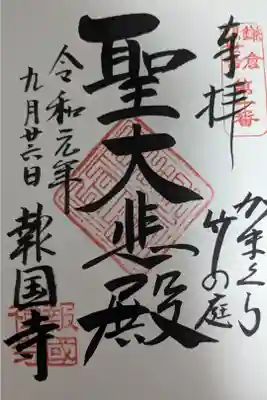 奉拝
かまくら
竹の庭
聖大悲殿
令和元年
九月廿六日
報国寺